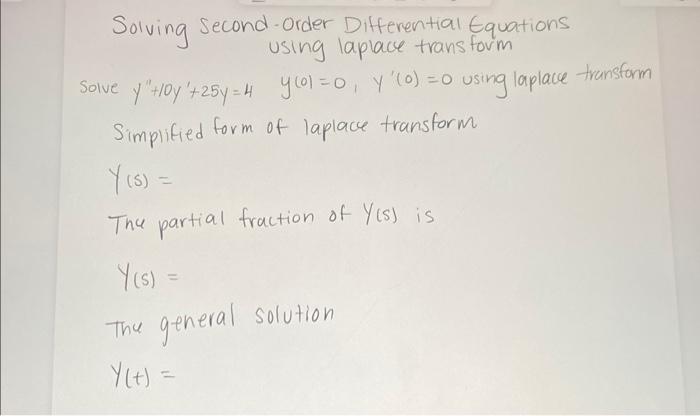 Solving Second-Order Differential Equations
using laplace transform
Solve y"+10y'+25y=4 y(0)=0, y'(0)=0 using laplace transform
Simplified form of laplace transform
Y(s) =
The partial fraction of Y(s) is
Y(s) =
The general solution
Y(t) =